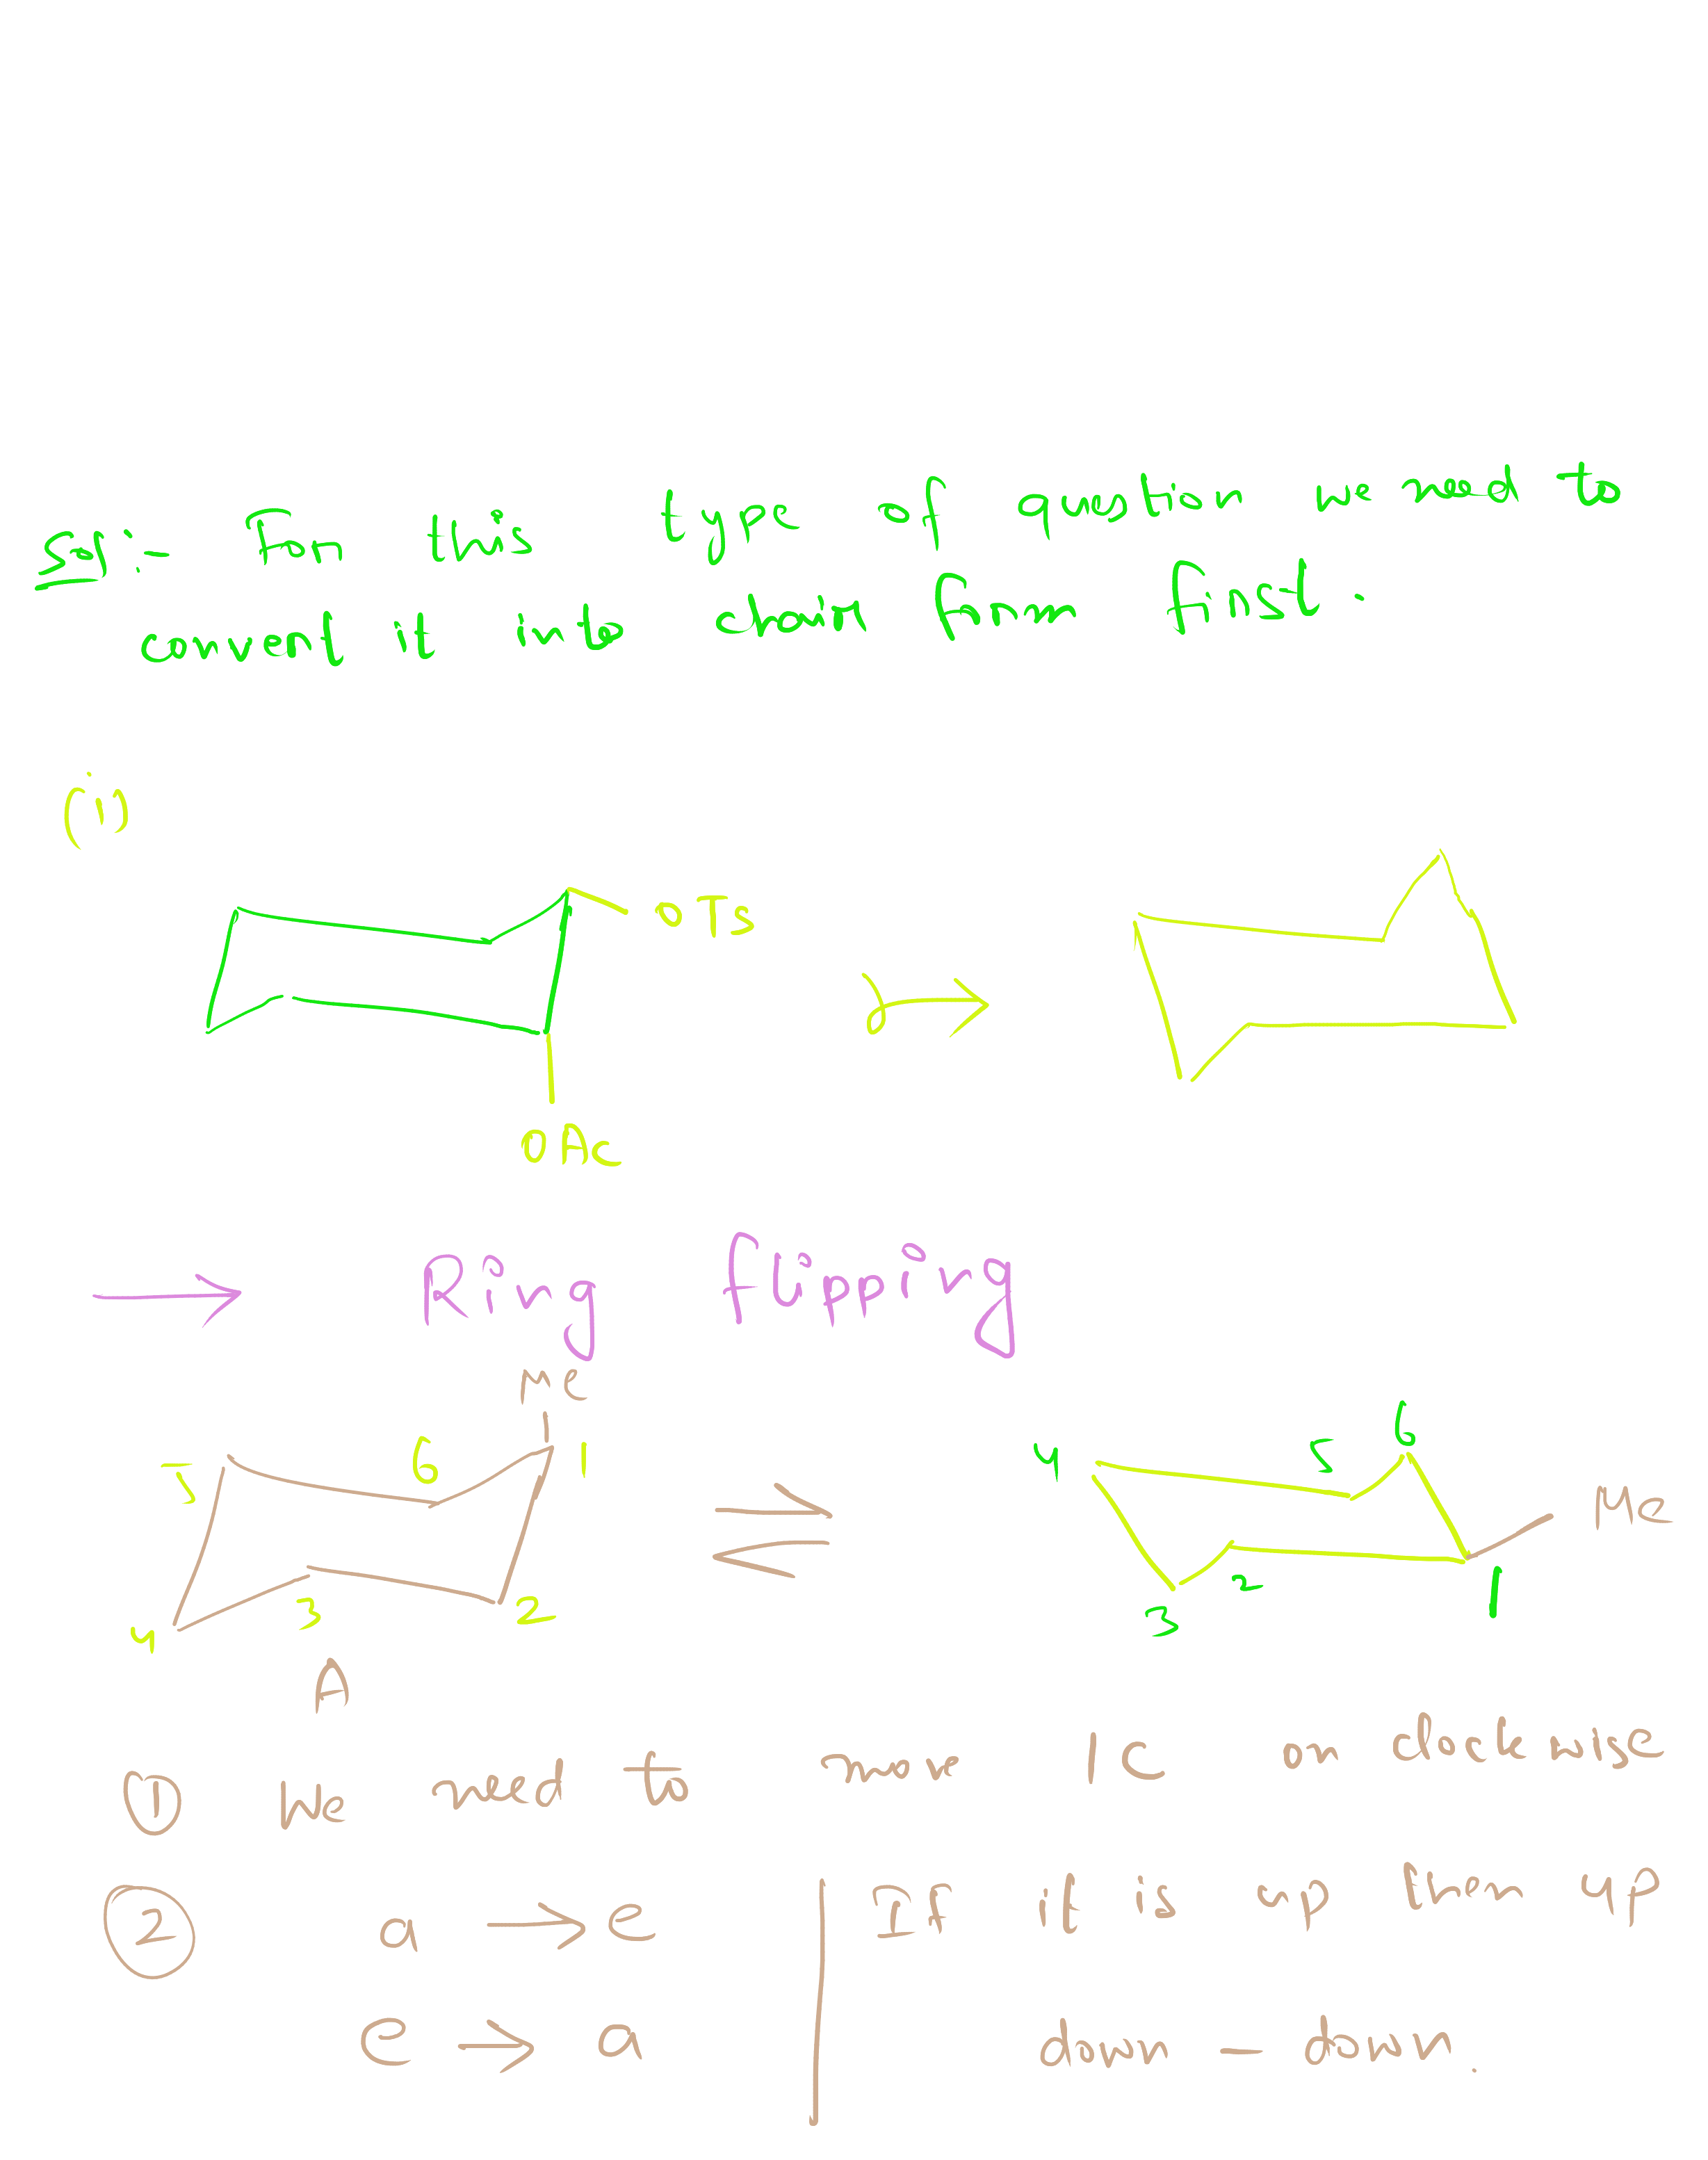 Sol:- For this type of question we need to
convert it into chair form first.
(i)
OTs
OAc
→ Ring flipping
Me
5 6 1
4 3 2
A
4 5 6
Me
3 2 1
① We need to move 1C on clockwise
② a → e | If it is up then up
e → a | down - down.